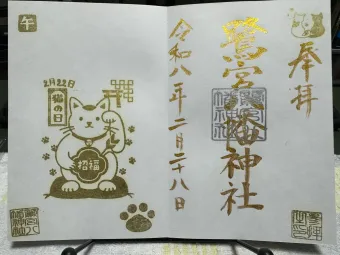 奉拝
鷺宮八幡神社
令和八年二月二十八日
午
2月22日
猫の日
招福